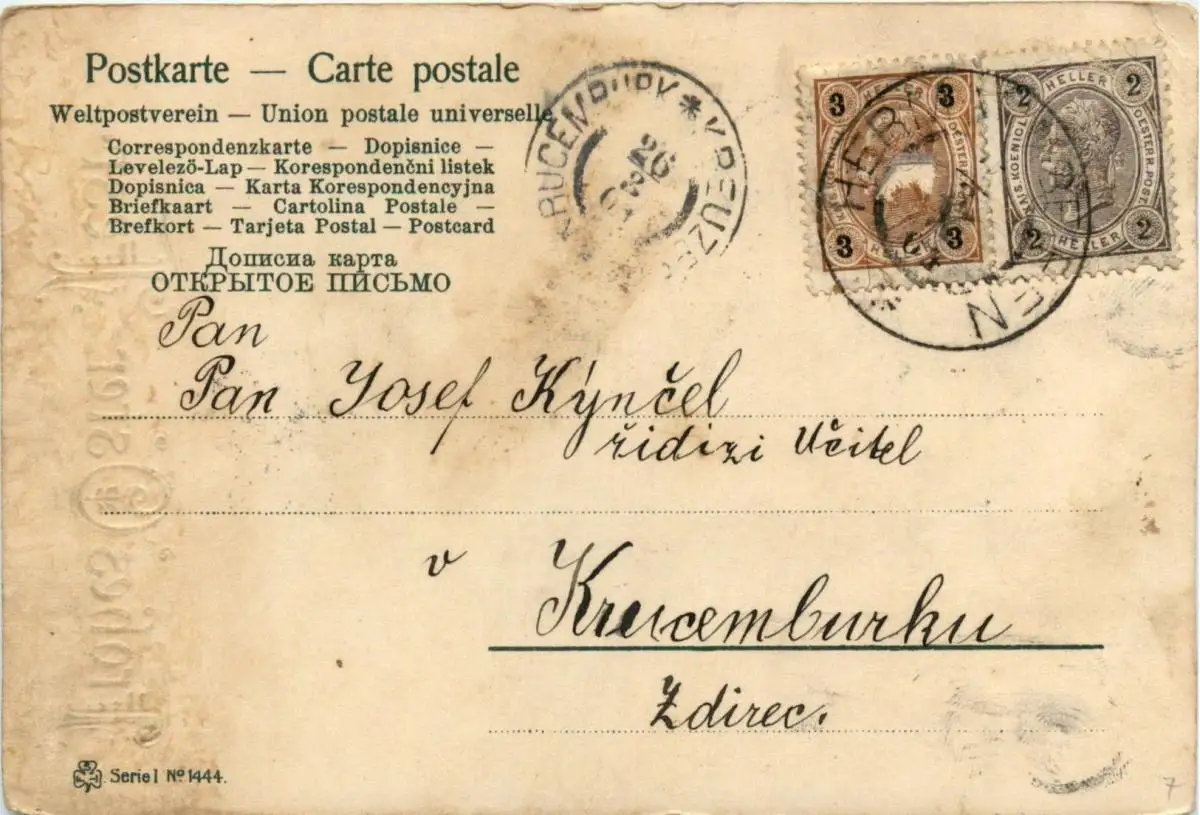 Postkarte — Carte postale
Weltpostverein — Union postale universelle
Correspondenzkarte — Dopisnice —
Levelező-Lap — Korespondenčni listek
Dopisnica — Karta Korespondencyjna
Briefkaart — Cartolina Postale —
Brefkort — Tarjeta Postal — Postcard
Дописна карта
ОТКРЫТОЕ ПИСЬМО
KRUCEMBURK * KREUZBE
26
3 HELLER 3
3 HELLER 3
2 HELLER 2
KAIS. KOENIGL. OESTERR. POST
2 HELLER 2
Pan
Pan Josef Kýnčel
židizi Učitel
v Krucemburku
Zdirec.
Serie I No 1444.
7